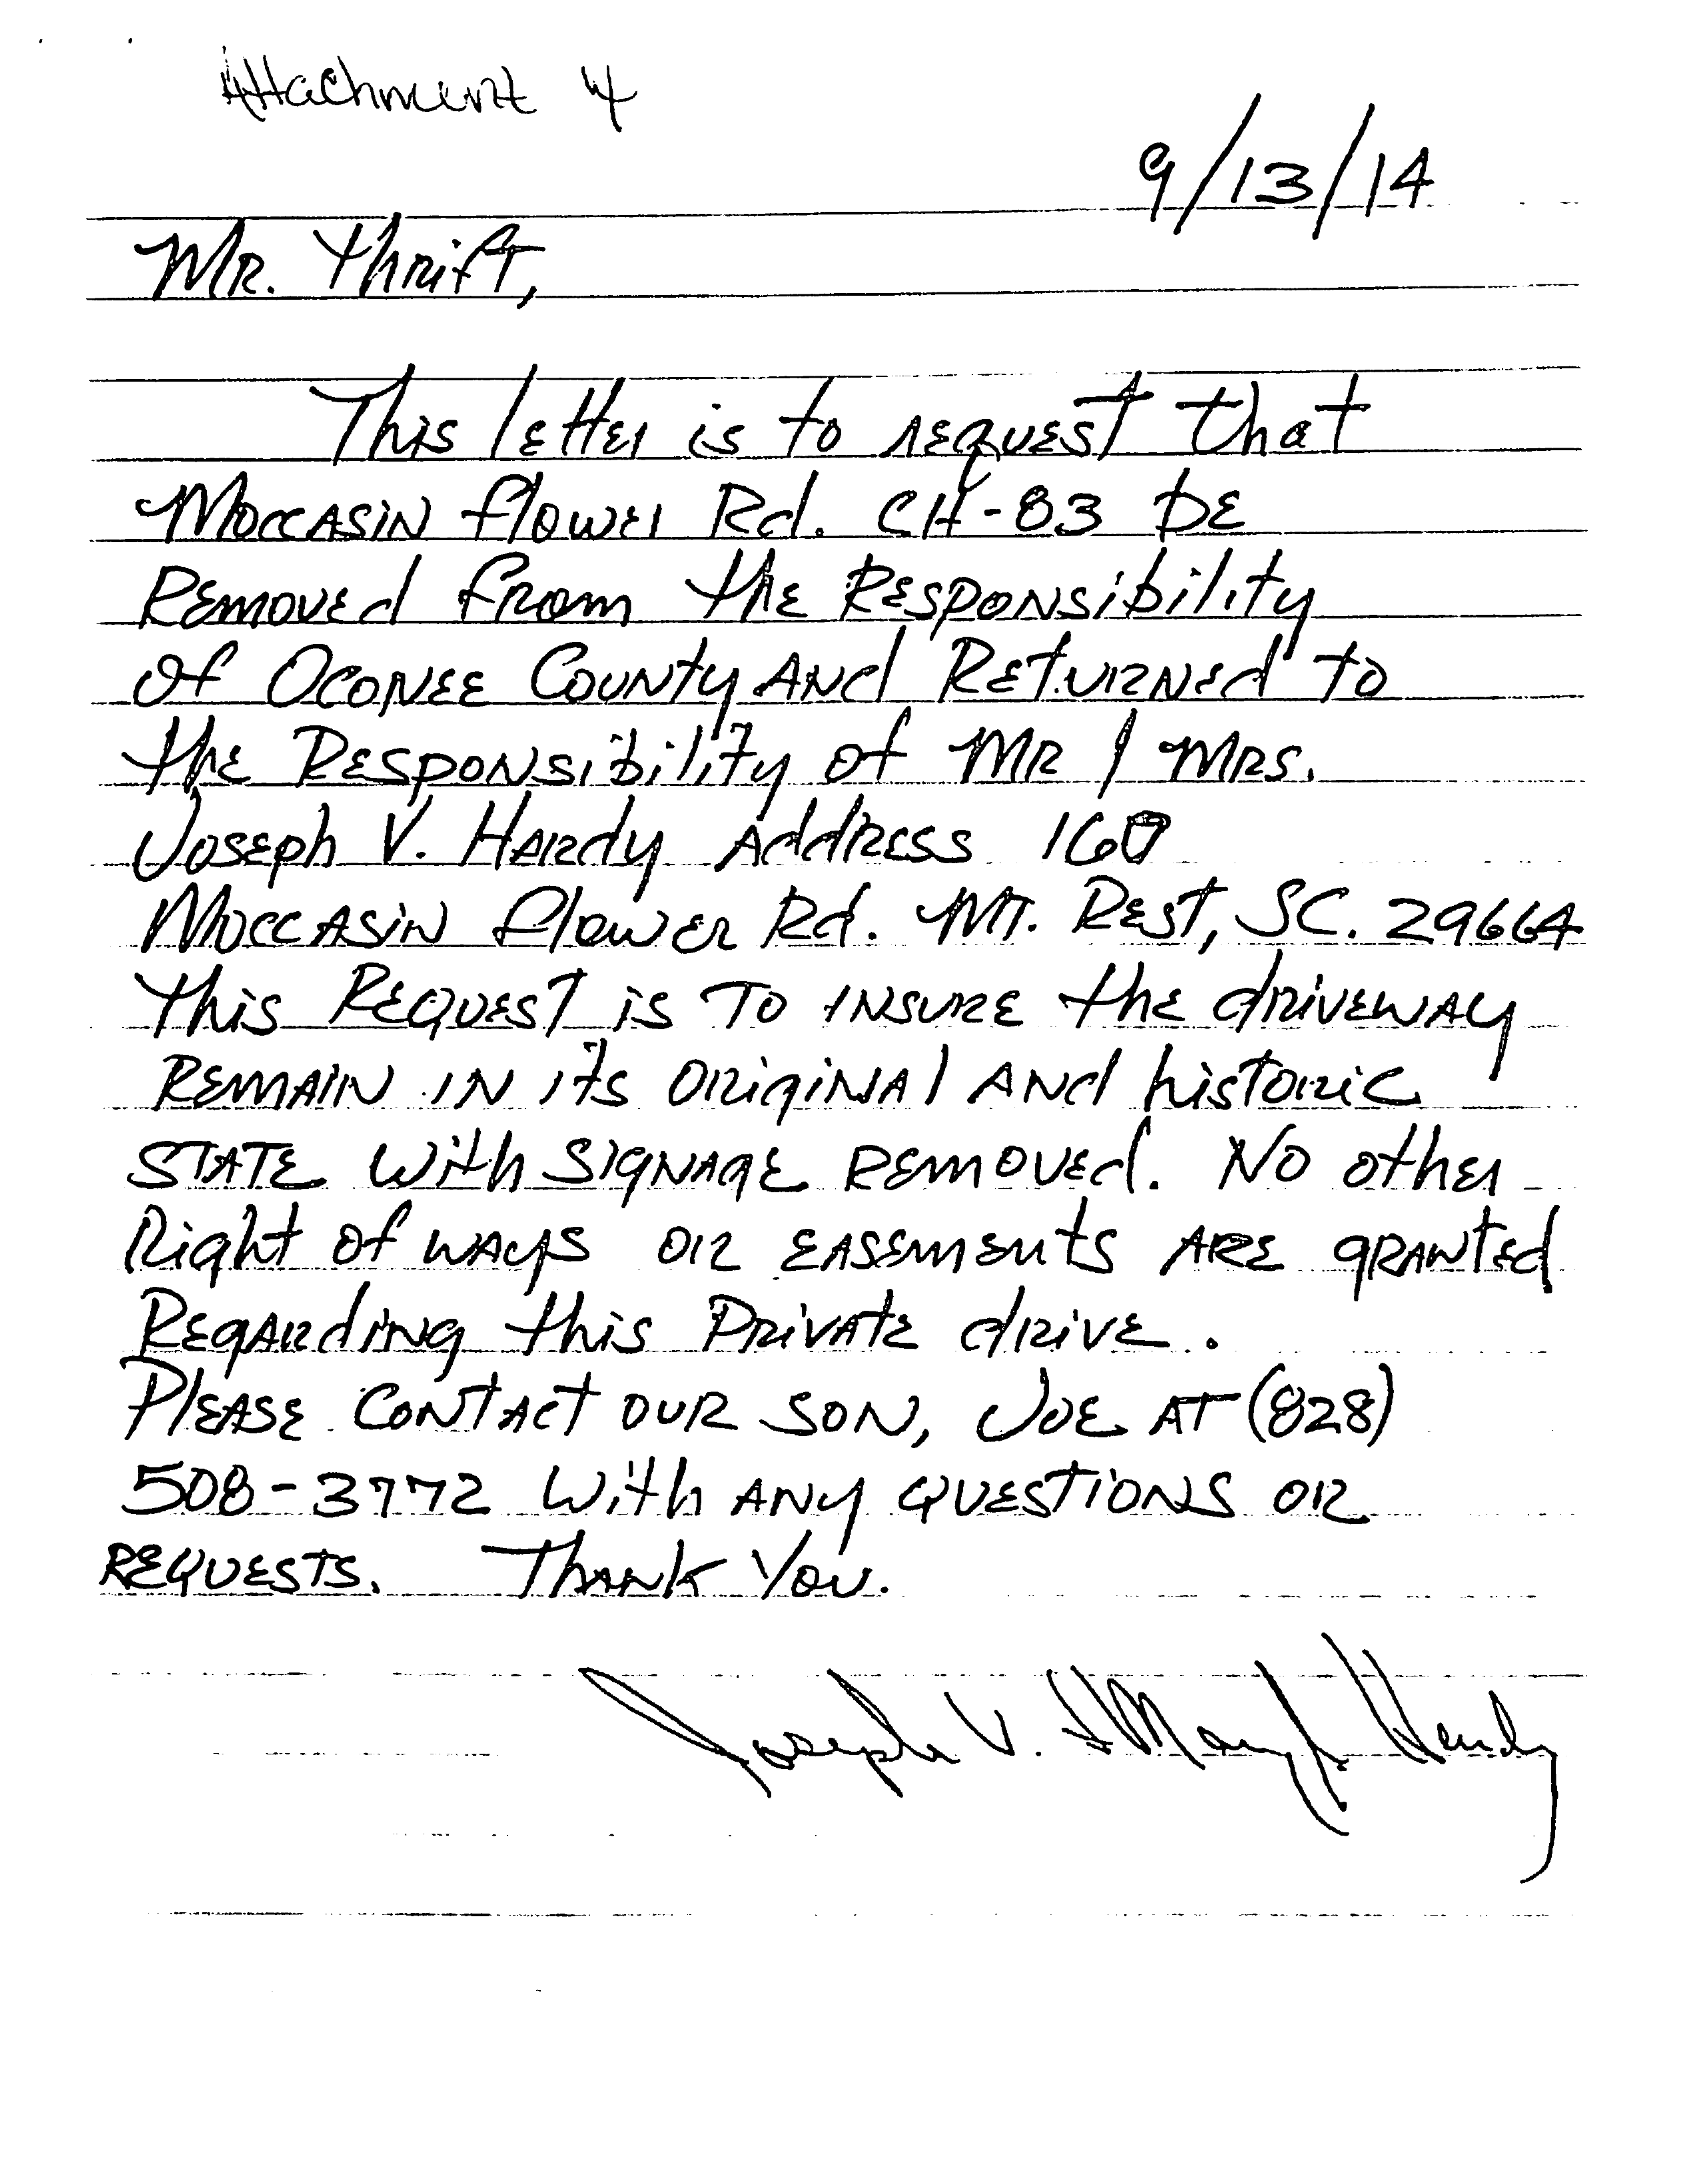 Attachment 4
9/13/14
Mr. Thrift,
This letter is to request that
Moccasin Flower Rd. CH-83 be
Removed from the Responsibility
of Oconee County And Returned to
the Responsibility of Mr / Mrs.
Joseph V. Hardy Address 160
Moccasin Flower Rd. Mt. Rest, SC. 29664
This Request is To insure the driveway
Remain in its original And historic
State with signage removed. No other
Right of ways or easements are granted
Regarding this Private drive.
Please contact our son, Joe at (828)
508-3772 with any questions or
requests. Thank You.
Joseph V. & Mary L. Hardy